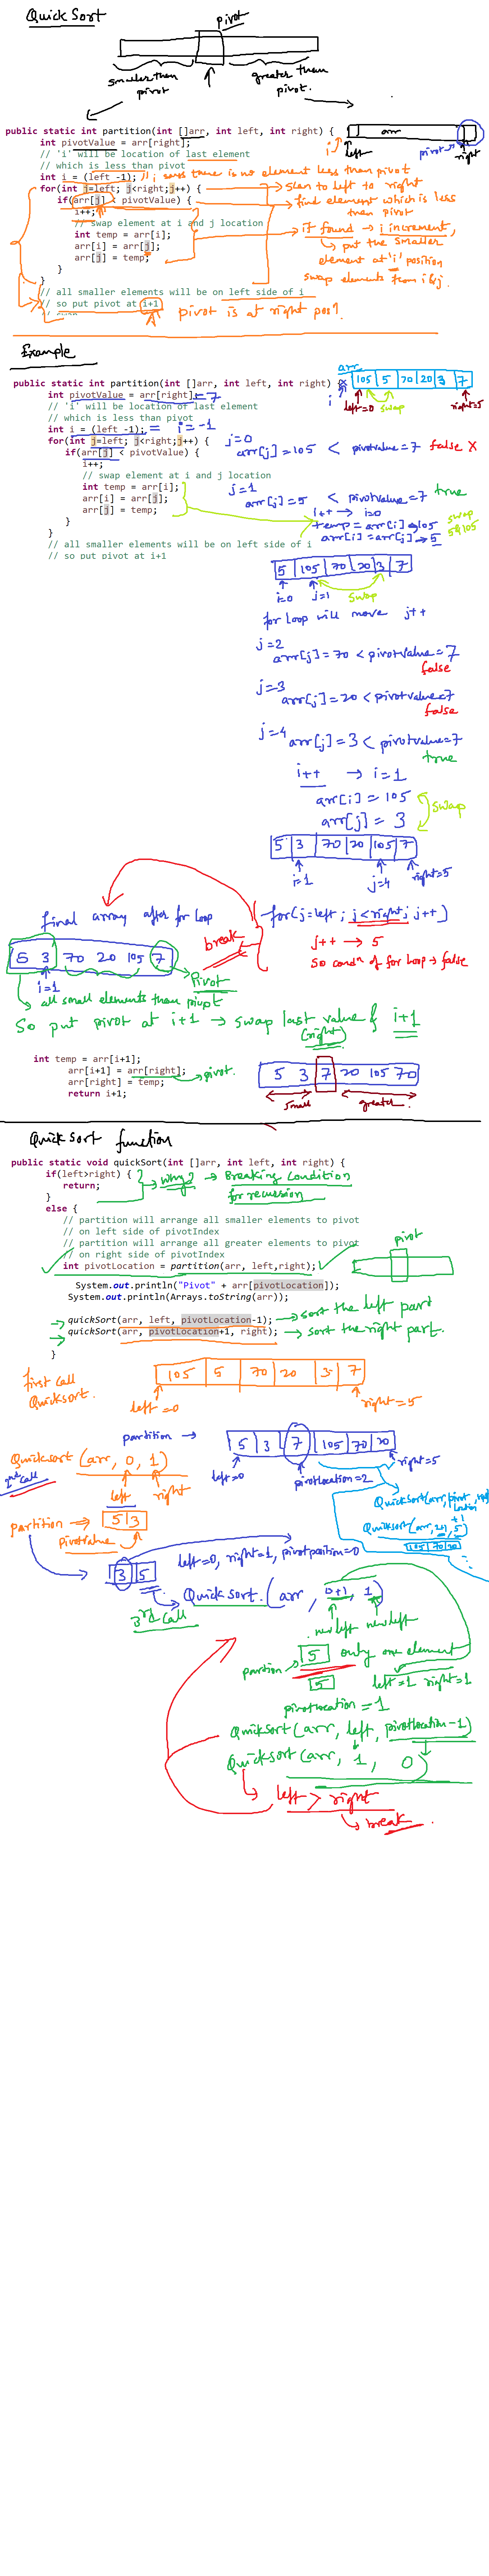 Quick Sort
pivot
smaller than pivot
greater than pivot.
public static int partition(int []arr, int left, int right) {
int pivotValue = arr[right];
// 'i' will be location of last element
// which is less than pivot
int i = (left -1); // i says there is no element less than pivot
for(int j=left; j<right;j++) {
if(arr[j] < pivotValue) {
i++;
// swap element at i and j location
int temp = arr[i];
arr[i] = arr[j];
arr[j] = temp;
}
}
// all smaller elements will be on left side of i
// so put pivot at i+1
arr
i
left
pivot
right
scan to left to right
find element which is less than pivot
if found → i increment,
put the smaller
element at 'i' position
swap elements from i & j.
pivot is at right posn.
Example
public static int partition(int []arr, int left, int right) {
int pivotValue = arr[right]; = 7
// 'i' will be location of last element
// which is less than pivot
int i = (left -1); = i = -1
for(int j=left; j<right;j++) {
if(arr[j] < pivotValue) {
i++;
// swap element at i and j location
int temp = arr[i];
arr[i] = arr[j];
arr[j] = temp;
}
}
// all smaller elements will be on left side of i
// so put pivot at i+1
arr
105 5 70 20 3 7
i
left=0
swap
right=5
j=0
arr[j] = 105 < pivotvalue = 7 false X
j=1
arr[j] = 5 < pivotvalue = 7 true
i++ → i=0
temp = arr[i] → 105
arr[i] = arr[j] → 5
swap
5 & 105
5 105 70 20 3 7
i=0 j=1 swap
for loop will move j++
j=2
arr[j] = 70 < pivotvalue = 7
false
j=3
arr[j] = 20 < pivotvalue = 7
false
j=4
arr[j] = 3 < pivotvalue = 7
true
i++ → i=1
arr[i] = 105
arr[j] = 3
swap
5 3 70 20 105 7
i=1 j=4 right=5
final array after for loop
5 3 70 20 105 7
i=1
Pivot
break
for(j=left; j<right; j++)
j++ → 5
So condn of for loop → false
all small elements than pivot
So put pivot at i+1 → swap last value & i+1
(right)
int temp = arr[i+1];
arr[i+1] = arr[right];
arr[right] = temp;
return i+1;
pivot.
5 3 7 20 105 70
small
greater.
Quick Sort function
public static void quickSort(int []arr, int left, int right) {
if(left>right) {
return;
}
why? → Breaking Condition
for recursion
else {
// partition will arrange all smaller elements to pivot
// on left side of pivotIndex
// partition will arrange all greater elements to pivot
// on right side of pivotIndex
int pivotLocation = partition(arr, left,right);
pivot
System.out.println("Pivot" + arr[pivotLocation]);
System.out.println(Arrays.toString(arr));
quickSort(arr, left, pivotLocation-1); → sort the left part
quickSort(arr, pivotLocation+1, right); → sort the right part.
}
first call
Quicksort.
105 5 70 20 3 7
left=0
right=5
partition →
5 3 7 105 70 20
left=0
pivotLocation=2
right=5
Quicksort (arr, 0, 1)
2nd call
left right
partition → 5 3
pivotvalue
3 5
left=0, right=1, pivotposition=0
Quicksort. (arr, 0+1, 1)
3rd call
new left new left
partion → 5 only one element
5
left=1 right=1
pivotlocation = 1
Quicksort (arr, left, pivotlocation-1)
Quicksort (arr, 1, 0)
left > right
break.
105 70 20